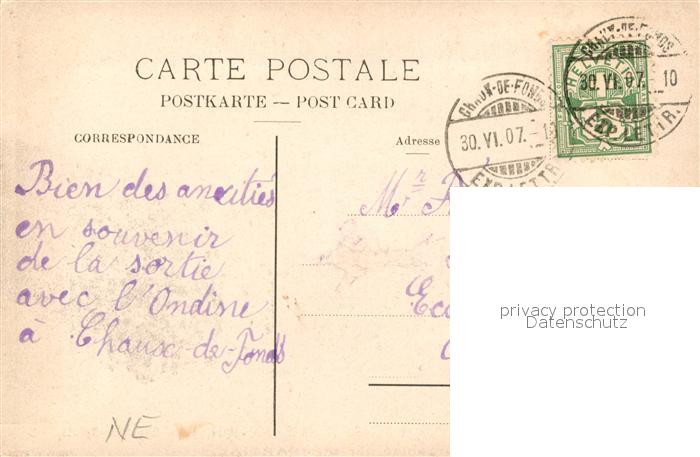 CARTE POSTALE
POSTKARTE — POST CARD
CORRESPONDANCE
Adresse
CHAUX-DE-FONDS
30.VI.07.
EXP. LETTR.
CHAUX-DE-FONDS
30.VI.07. 10
EXP. LETTR.
HELVETIA
Bien des amitiés
en souvenir
de la sortie
avec l'Ondine
à Chaux-de-Fonds
Mr
NE
privacy protection
Datenschutz